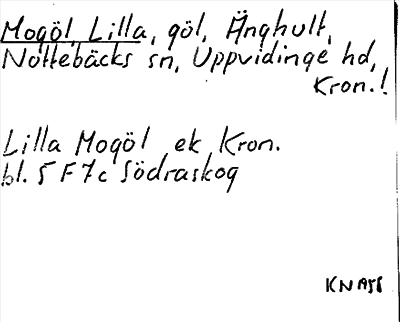 Mogöl, Lilla, göl, Änghult,
Nottebäcks sn, Uppvidinge hd,
Kron.!
Lilla Mogöl ek Kron.
bl. 5 F 7c Södraskog